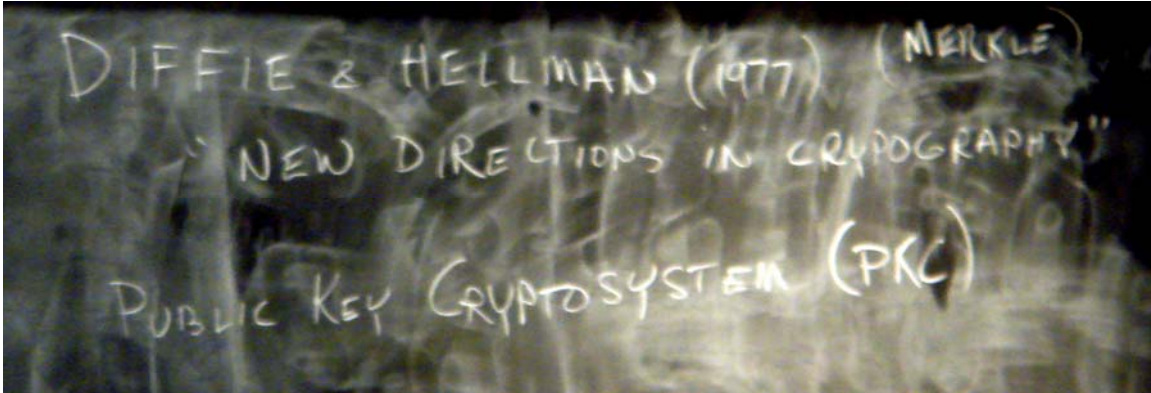 DIFFIE & HELLMAN (1977) (MERKLE)
"NEW DIRECTIONS IN CRYPOGRAPHY"
PUBLIC KEY CRYPTOSYSTEM (PKC)